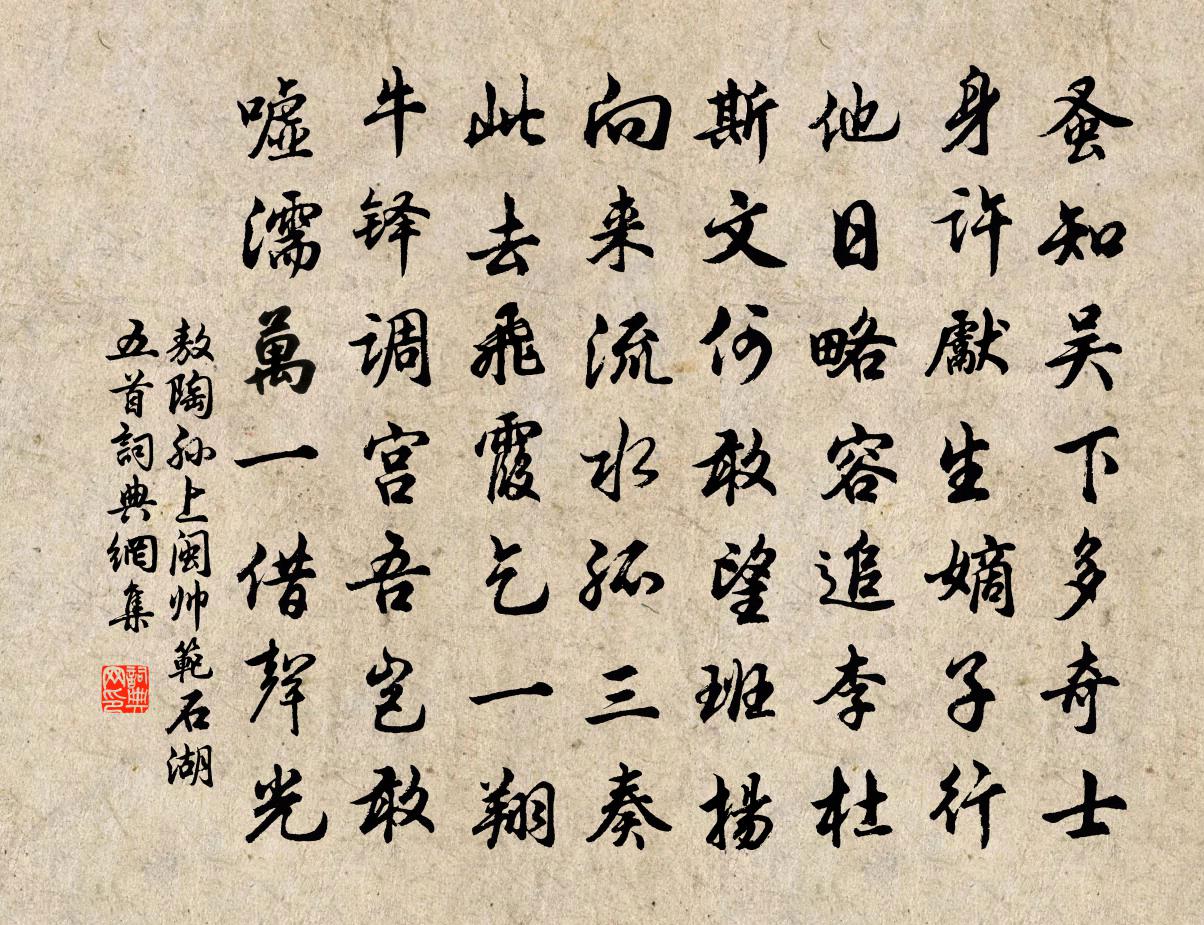 蚤知吴下多奇士
身许獻生嫡子行
他日略容追李杜
斯文何敢望班揚
向来流水孤三奏
此去飛霞乞一翔
牛铎调宫吾岂敢
嘘濡萬一借聲光
敖陶孙上闽帅範石湖
五首詞典網集
詞典网印